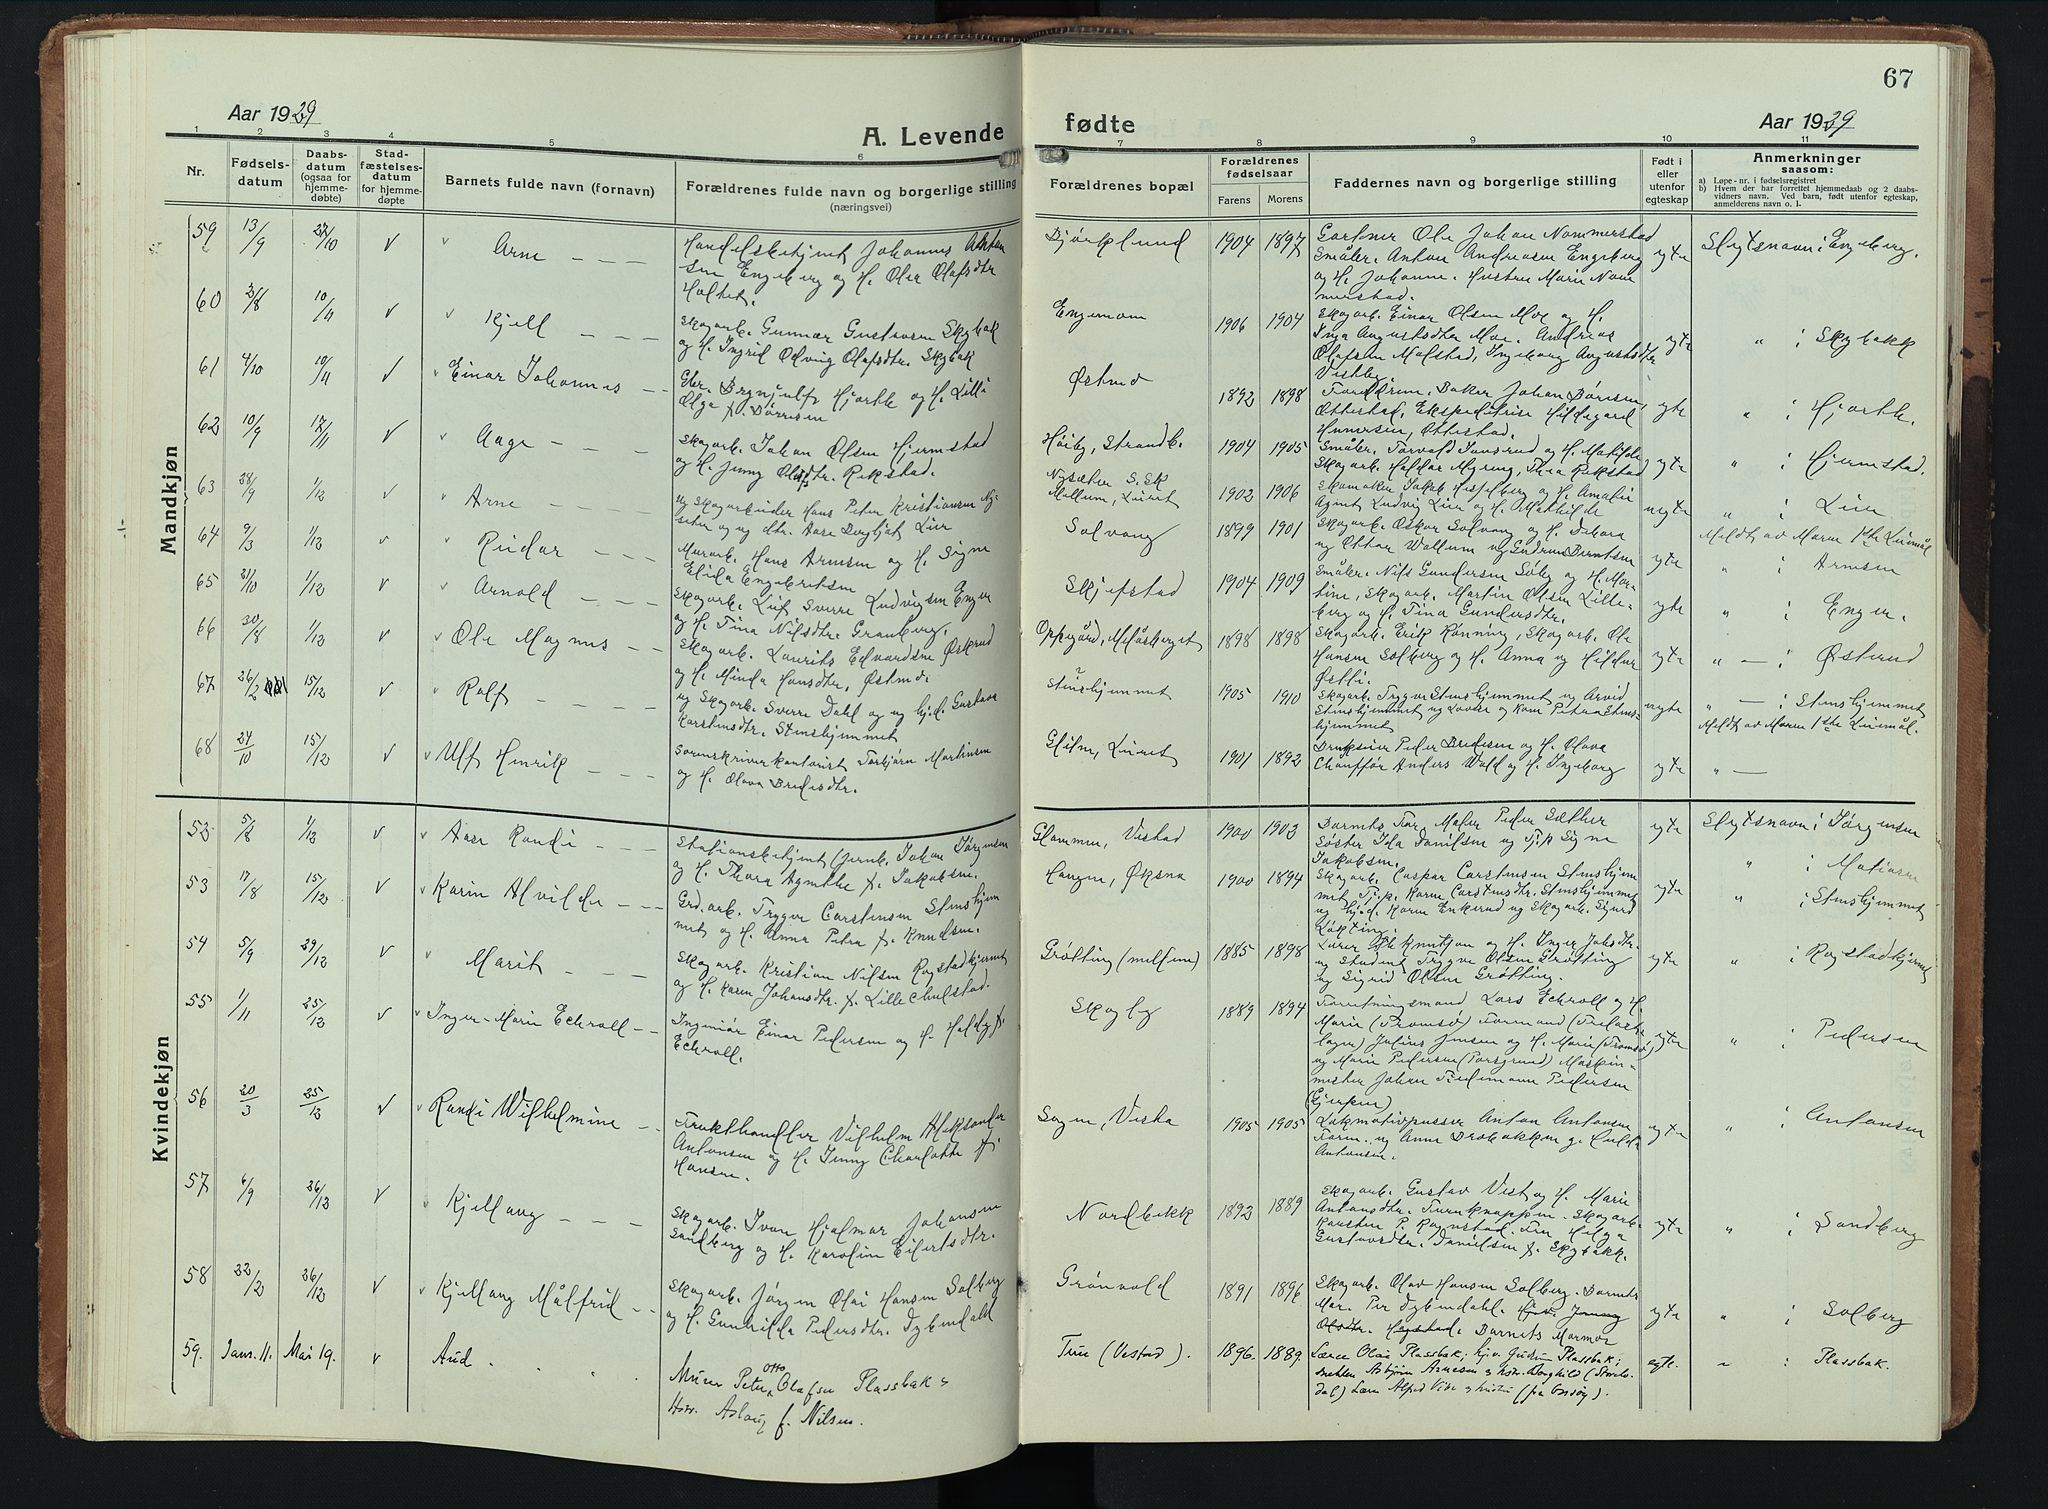 67
Aar 1929
A. Levende
fødte
Aar 1929
1 2 3 4 5 6 7 8 9 10 11
Nr.
Fødsels-
datum
Daabs-
datum
(ogsaa for
hjemme-
døbte)
Stad-
fæstelses-
datum
for hjemme-
døpte
Barnets fulde navn (fornavn)
Forældrenes fulde navn og borgerlige stilling
(næringsvei)
Forældrenes bopæl
Forældrenes
fødselsaar
Farens Morens
Faddernes navn og borgerlige stilling
Født i
eller
utenfor
egteskap
Anmerkninger
saasom:
a) Løpe-nr. i fødselsregistret
b) Hvem der har forrettet hjemmedaab og 2 daabs-
vidners navn. Ved barn, født utenfor egteskap,
anmelderens navn o. l.
Mandkjøn
59 13/9 27/10 Arne
Handelsbetjent Johannes Anton
sen Engeberg og H. Olea Olafsdtr
Holtet.
Bjørklund 1904 1897
Gartner Ole Johan Nommerstad
Småbr. Anton Andreasen Engeberg
og H. Johanne. Hustru Marie Nom
merstad.
egte Slegtsnavn: Engeberg.
60 2/8 10/4 Kjell
Skogarb. Gunnar Gustavsen Skybak
og H. Ingrid Olafsdtr. Skybak
Engemoen 1906 1904
Skogarb. Einar Olsen Moe og H.
Inga Augustsdtr Moe. Andreas
Olafsen Malstad, Ingeborg Augustsdtr
Vestby
egte " : Skybakk
61 4/10 10/4 Einar Johannes
Brynjulf Hjorthe og H. Lilli
Olga f. Børresen
Østmo 1892 1898
Baker Johan Børresen,
Ottestad, Ekspeditrise Hildegard
Ottestad.
egte " : Hjorthe.
62 10/9 17/11 Aage
Skogarb. Johan Olsen Hjermstad
og H. Jenny Olsdtr. Rekstad.
Høiby, Strandb. 1904 1905
Småbr. Torvald og H. Mathilde
Skogarb. Halfdar Myreng, Thea Rekstad
egte " : Hjermstad.
63 28/9 1/12 Arne
ug Skogarbeider Hans Peter Kristiansen Ny-
seter og ug dtr. Aase Bergljot Lier
Nysæter S.SK
Mellum, Lieret 1902 1906
Skomaker Jakob Hesselberg og H. Amalie
Agent Ludvig Lier og H. Mathilde
uegte " : Lier
Meldt av Moren
64 9/3 1/12 Reidar
Murarb. Hans Arnesen og H. Signe
Elida Engebretsen
Solvang 1899 1901
Skogarb. Oskar Solvang og H. Debora
ug Ottar Wollum ug Gudrun Berntsen
egte " : Arnesen
65 21/10 1/12 Arnold
Skogarb. Leif Sverre Ludvigsen Enger
og H. Tina Nilsdtr. Granberg.
Skjefstad 1904 1909
Småbr. Nils Gundersen Søby og H. Mar-
tine, Skogarb. Martin Olsen Lille-
berg og H. Tina Gundersdtr.
egte " : Enger.
66 20/8 1/12 Ole Magnus
Skogarb. Laurits Edvardsen Østerud
og H. Minda Hansdtr. Østmo.
Oppegård, Melåsberget 1898 1898
Skogarb. Erik Rønning, Skogarb. Ole
Hansen Solberg og H. Anna ug Hildur
Østli.
egte " — : Østerud
67 26/2 15/12 Rolf
ug Skogarb. Sverre Dahl og ug hj.d. Gustava
Karstensdtr. Stenshjemmet
Stenshjemmet 1905 1910
Skogarb. Trygve Stenshjemmet ug Arvid
Stenshjemmet ug Lovise og Kone Petra Stens-
hjemmet
uegte " — : Stenshjemmet
Meldt av Moren
68 24/10 15/12 Ulf Henrik
Sorenskriverkontorist Torbjørn Martinsen
og H. Olava Bredesdtr.
Glilm, Lieret 1901 1892
Brukseier Peder Bredesen og H. Olava
Chauffør Anders Vold og H. Ingeborg
egte " —
Kvindekjøn
52 5/8 1/12 Aase Randi
Stationsbetjent (Jernb. Johan Jørgensen
og H. Thora Agnethe f. Jakobsen.
Glommen, Vestad 1900 1903
Barnets Far, Maler Peder Sæther
Søster Ida Danielsen ug Pik Signe
Jakobsen.
egte Slegtsnavn: Jørgensen
" : Matiasen
53 17/8 15/12 Karin Alvilde
Grd.arb. Trygve Carstensen Stenshjem
met og H. Anna Petra f. Knudsen.
Haugen, Øksna 1900 1894
Skogarb. Caspar Carstensen Stenshjem
met, Pik Karen Carstensdtr. Stenshjemmet
ug hj.d. Karen Enkerud ug Skogarb. Sigurd
Løkting.
egte " : Stenshjemmet
54 5/9 29/12 Marit
Skogarb. Kristian Nilsen Rogstadhjemmet
og H. Karen Johansdtr. f. Lille Chulstad.
Grøtting 1885 1898
Lærer Knutson og H. Inger Johsdtr.
ug Student Trygve Olsen Grøtting
ug Sigrid Olsen Grøtting.
egte " : Rogstadhjemmet
55 1/11 25/12 Inger-Marie Echroll
Ingeniør Einar Pedersen og H. Haldy f.
Echroll.
Skogly 1889 1894
Forretningsmand Lars Echroll og H.
Marie (Tromsø) Formand
Julius Jensen og H. Marie (Tromsø)
ug Marie Pedersen (Porsgrund) Maskin-
mester Johan Fredemann Pedersen
(Gjerpen)
egte " : Pedersen
56 20/3 25/12 Randi Wilhelmine
Frukthandler Vilhelm Aleksander
Antonsen og H. Jenny Charlotte f.
Hansen.
Sagen, Vesta 1905 1905
Lokmotivpusser Anton Antonsen
Farm. ug Anne Brobakken g. Hulda
Antonsen.
egte " : Antonsen
57 6/9 26/12 Kjellaug
Skogarb. Ivar Hjalmar Johansen
Sandberg og H. Karoline Eilertsdtr.
Nordbekk 1892 1889
Skogarb. Gustav Vest og H. Marie
Antonsdtr. Furuknappen. Skogarb.
Karsten P. Rognstad. Fru Helga
Gustavsdtr. Danielsen f. Skybakk.
egte " : Sandberg
58 22/2 26/12 Kjellaug Målfrid
Skogarb. Jørgen Olai Hansen Solberg
og H. Gunhilda Pedersdtr. Dybendahl
Grønvold 1891 1896
Skogarb. Olav Hansen Solberg. Barnets
Mor. Per Dybendahl. Jenny
Olsdtr. Hegstad. Barnets Mormor
egte " : Solberg
59. Jan. 11. Mai 19. Aud
Murer Peter Otto Olafsen Plassbak &
Hstr. Aslaug f. Nilsen.
Tune (Vestad). 1896. 1889.
Lærer Olai Plassbak; hjv. Gudrun Plassbak;
snekker Asbjørn Arnesen & hstr. Borghild (Storels-
dal) Lærer Alfred Vibe & Kristi (fra Gossøy).
egte. " : Plassbak.